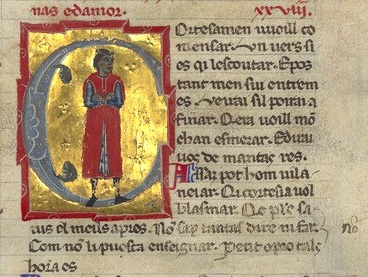 nas edamor. xxviii.
Cortesamen uuoill co
mensar. Un uers si
es qi lescoutar. Epos
tant men sui entrem
es. Veirai sil poirai a
finar. Qera uoill mo
chan esmerar. Edirai
uos de mantas res.
pot hom uila
neiar. Qi cortesia uol
blasmar. Qel plus sa
uis el meills apres. No sap tantas dire ni far.
Com no li puesca enseignar. Petit opro tals
hora es